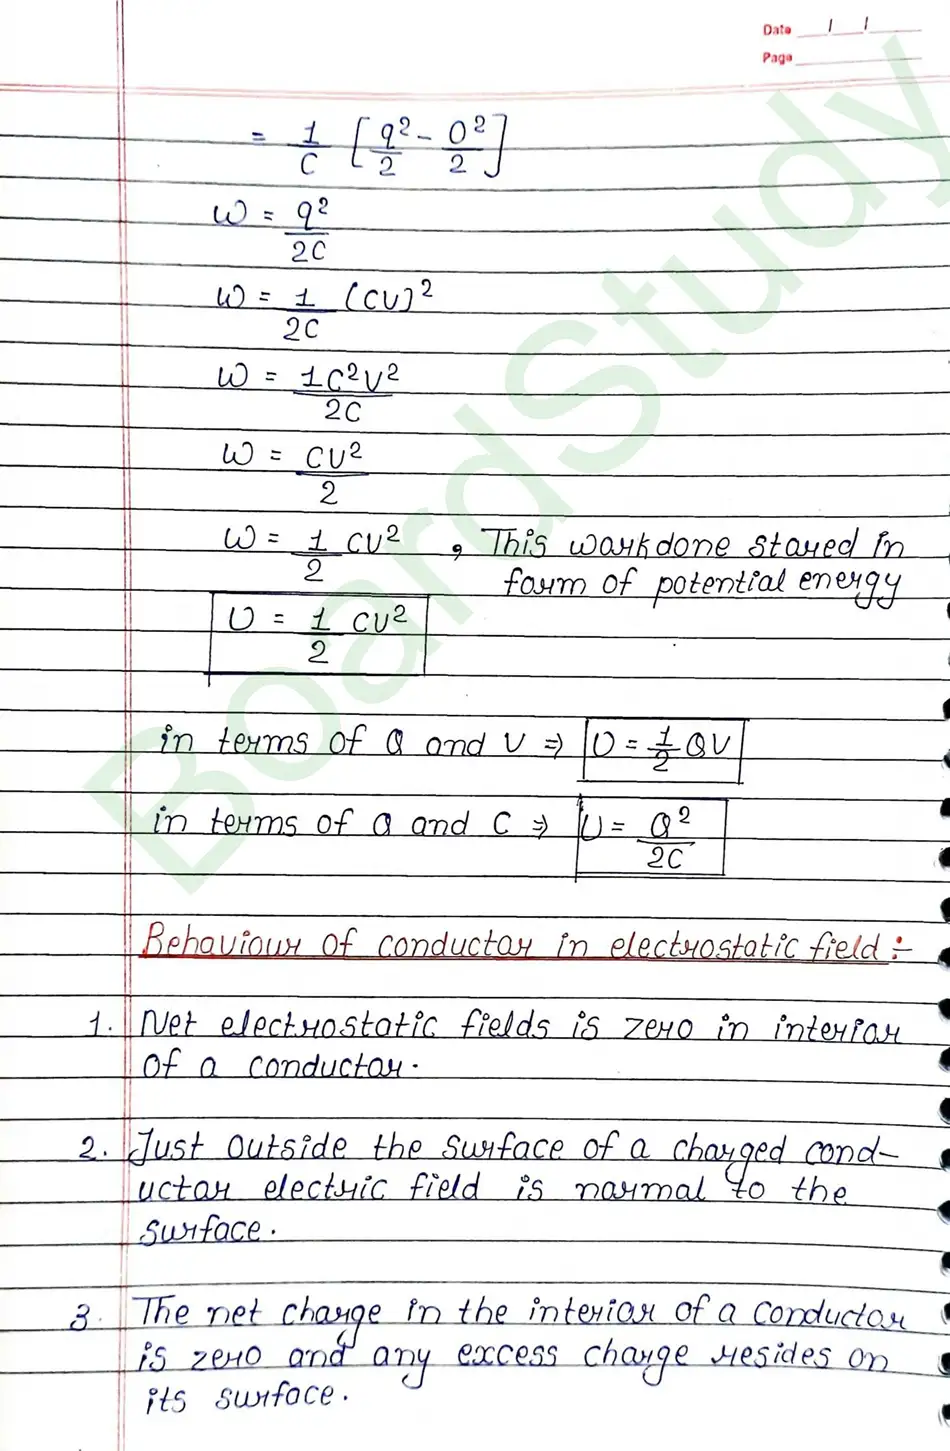 Date / /
Page
= 1/C [q²/2 - 0²/2]
W = q²/2C
W = 1/2C (CV)²
W = 1C²V²/2C
W = CV²/2
W = 1/2 CV² , This workdone stored in
form of potential energy
U = 1/2 CV²
in terms of Q and V ⇒ U = 1/2 QV
in terms of Q and C ⇒ U = Q²/2C
Behaviour of conductor in electrostatic field :-
1. Net electrostatic fields is zero in interior
of a conductor.
2. Just outside the surface of a charged cond-
uctor electric field is normal to the
surface.
3. The net charge in the interior of a conductor
is zero and any excess charge resides on
its surface.
BoardStudy